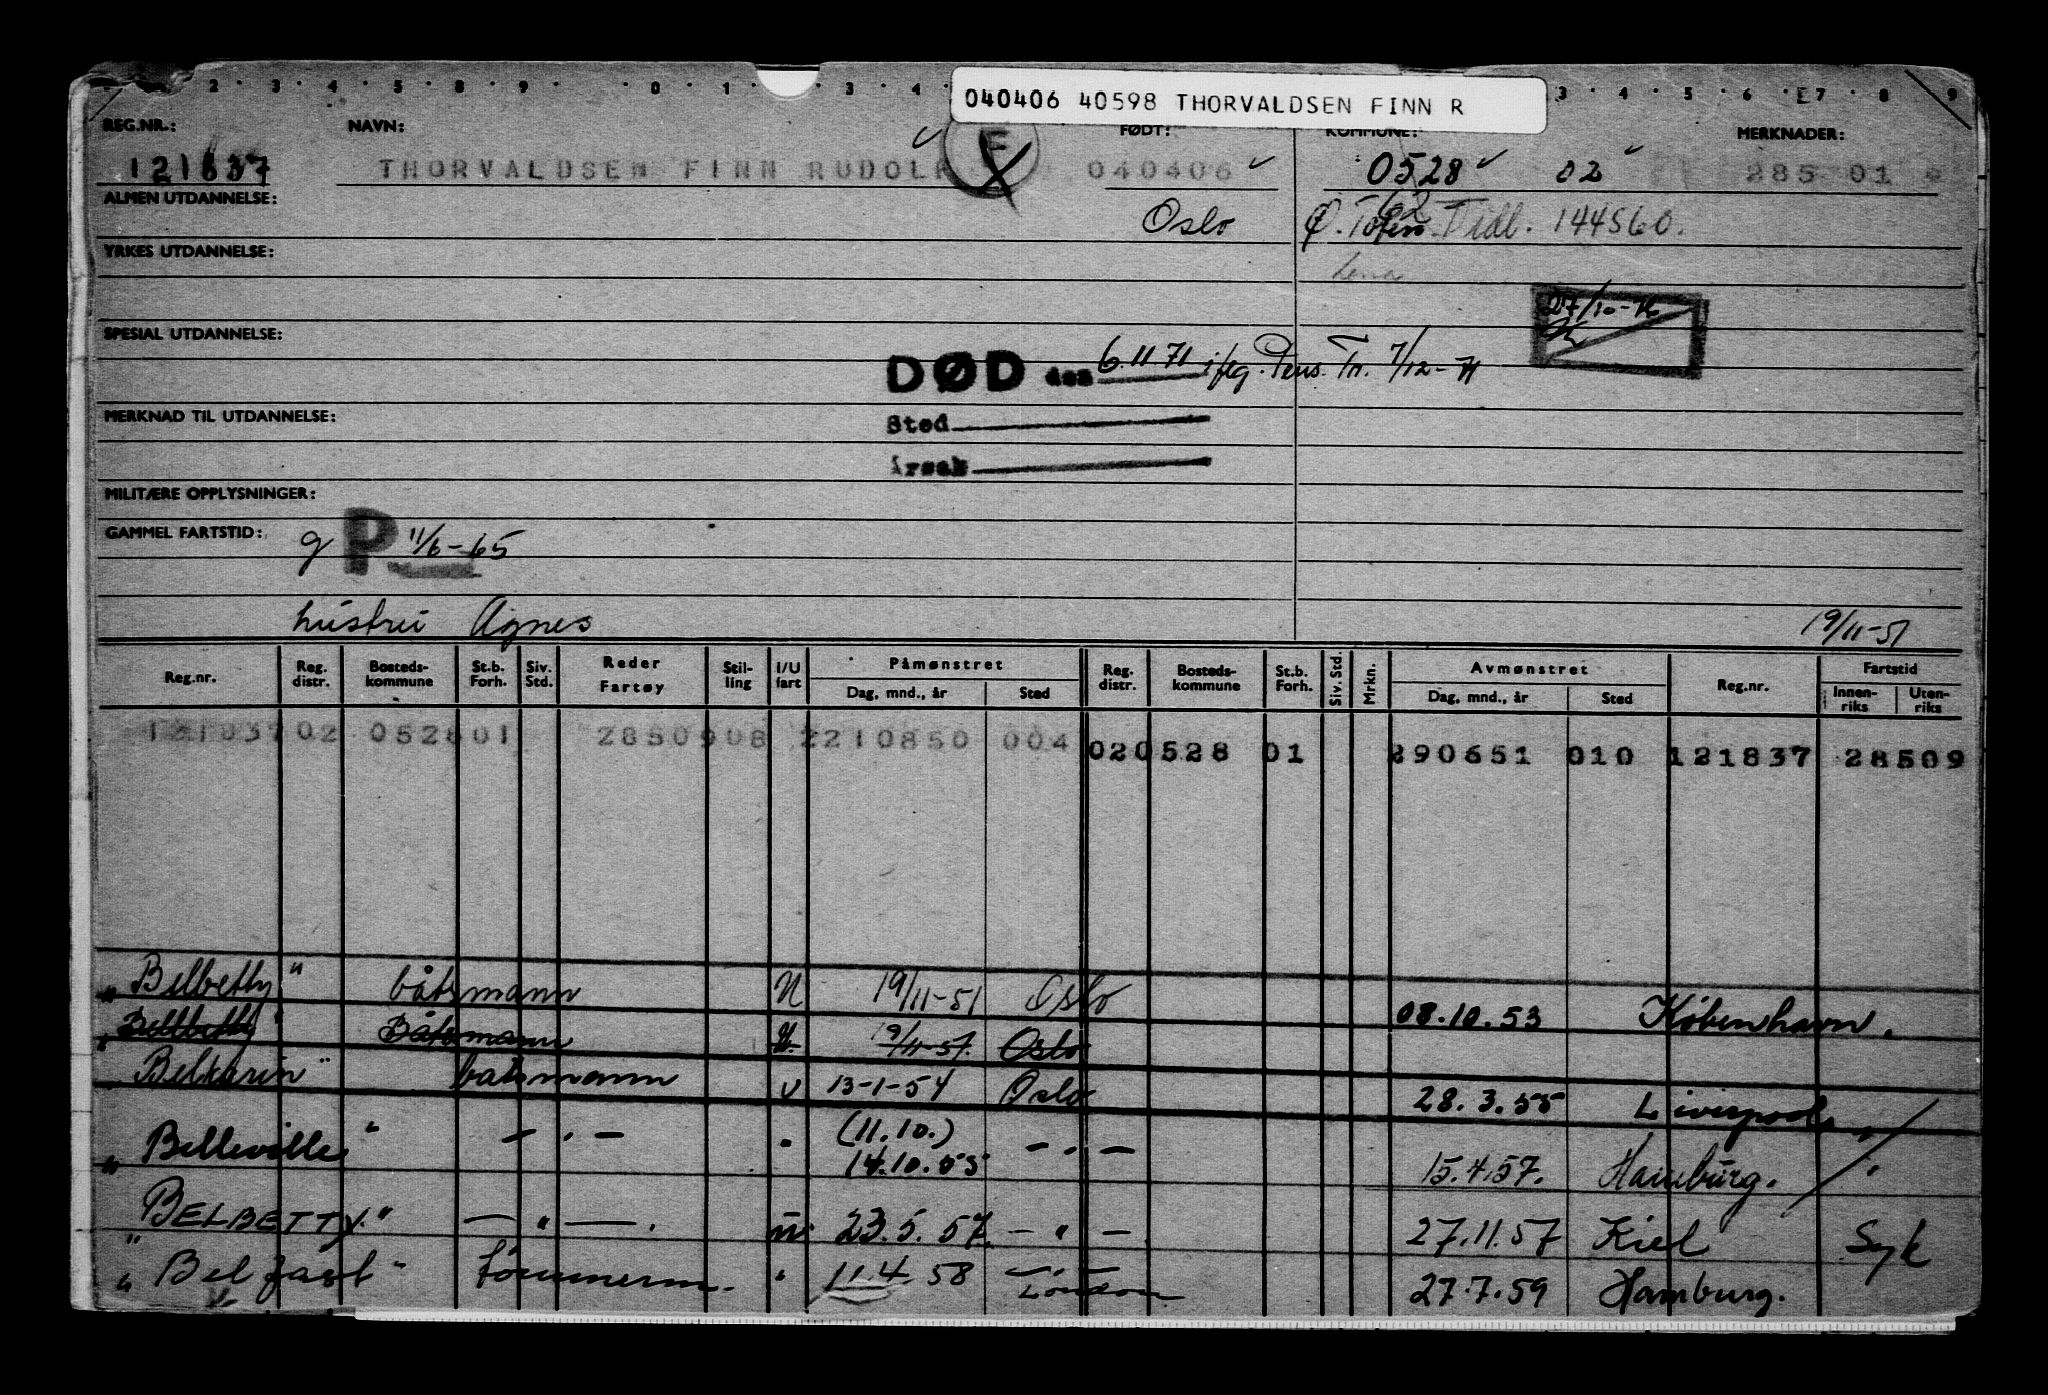 040406 40598 THORVALDSEN FINN R
REG.NR.: NAVN: FØDT: KOMMUNE: MERKNADER:
121837 THORVALDSEN FINN RUDOLF E 040406 0528 02 285 01
ALMEN UTDANNELSE: Oslo Ø. Toten Tidl. 144560.
YRKES UTDANNELSE: Lena
27/10-76
SPESIAL UTDANNELSE:
DØD den 6.11 71 ifлg. Pens. Tr. 7/12-71
MERKNAD TIL UTDANNELSE: Sted
Årsak
MILITÆRE OPPLYSNINGER:
GAMMEL FARTSTID: g P 11/6-65
hustru Agnes 19/11-51
Reg.nr. Reg. distr. Bosteds-kommune St.b. Forh. Siv. Std. Reder Fartøy Stil-ling I/U fart Påmønstret Dag, mnd., år Sted Reg. distr. Bosteds-kommune St.b. Forh. Siv. Std. Mrkn. Avmønstret Dag, mnd., år Sted Reg.nr. Fartstid Innen-riks Uten-riks
121837 02 0528 01 2850908 2210850 004 020528 01 290651 010 121837 28509
"Belbetty" båtsmann U 19/11-51 Oslo 08.10.53 København.
"Belbetty" Båtsmann U. 19/11-57. Oslo
"Belkarin" båtsmann U 13-1-54 Oslo 28.3.55 Liverpool
"Belleville" - " - " (11.10.) 14.10.55 - " - 15.4.57. Hamburg.
"BELBETTY." - " - . U. 23.5.57. - " - 27.11.57 Kiel Syk
"Belfast" tømmerm. " 11.4.58 London 27.7.59 Hamburg.